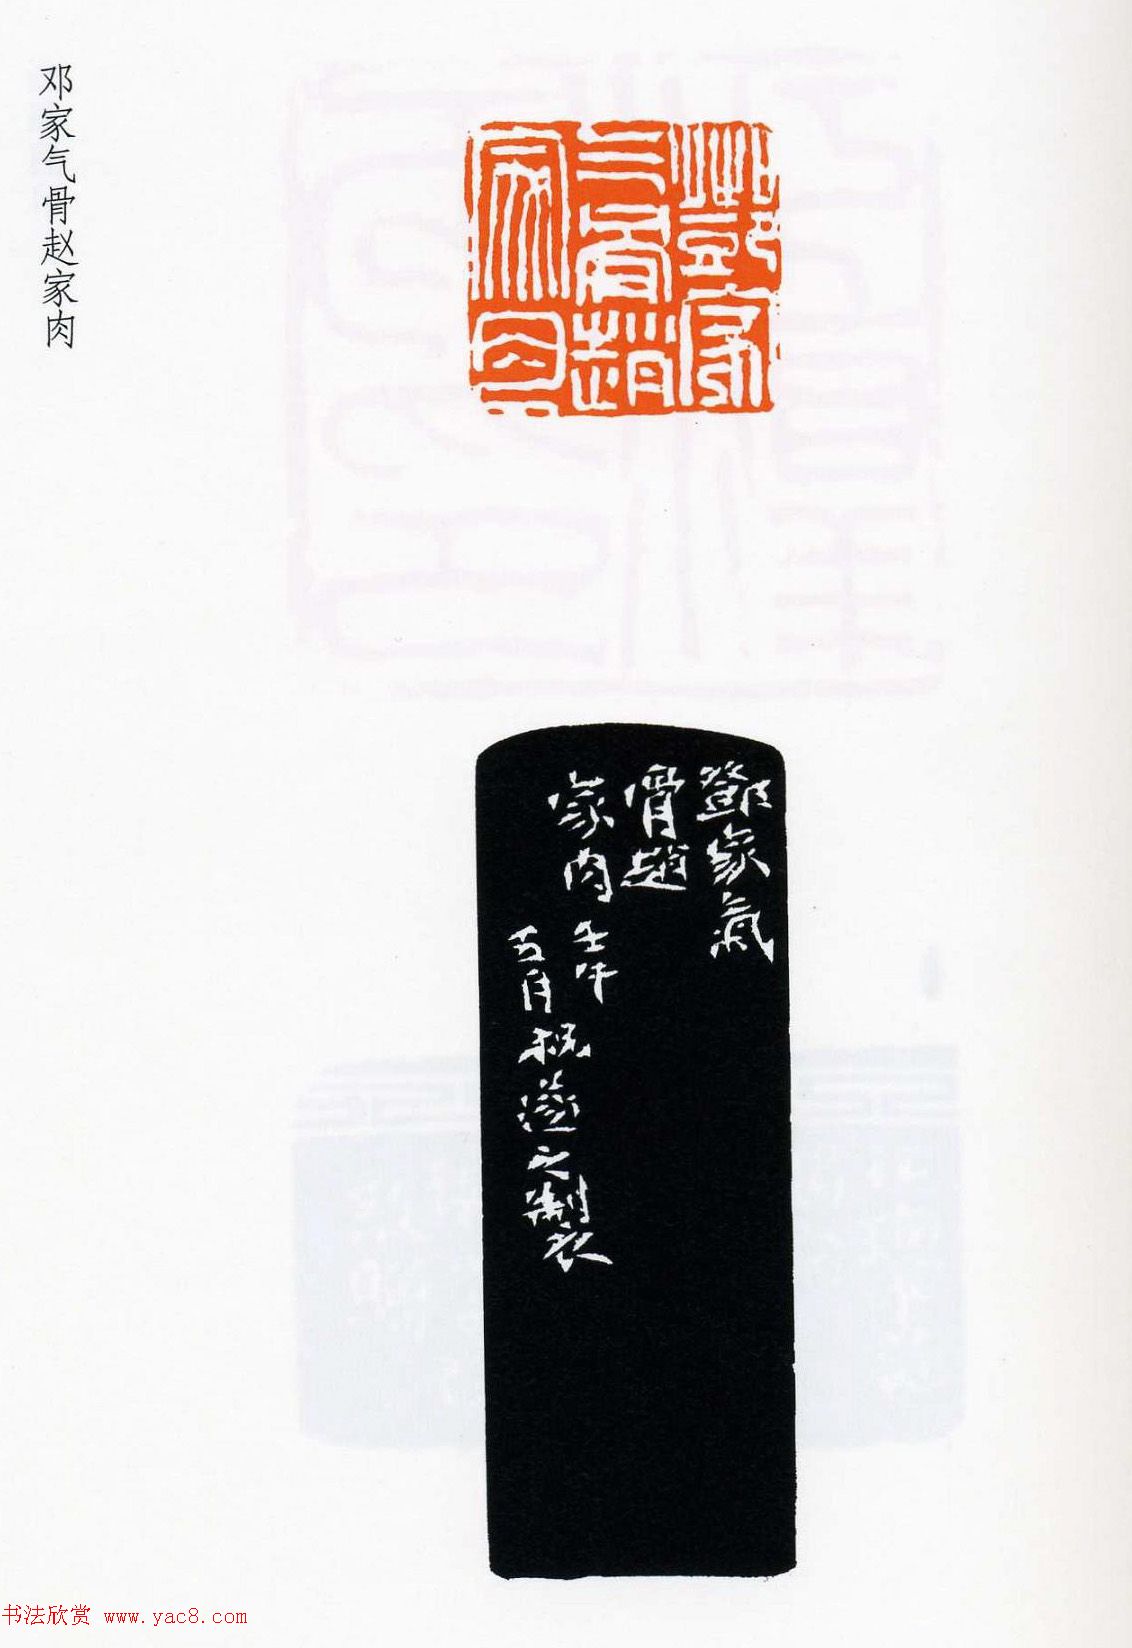 邓家气骨赵家肉
鄧家
气骨趙
家肉
鄧家氣
骨趙
家肉 壬午
五月 祝遂之製
书法欣赏 www.yac8.com